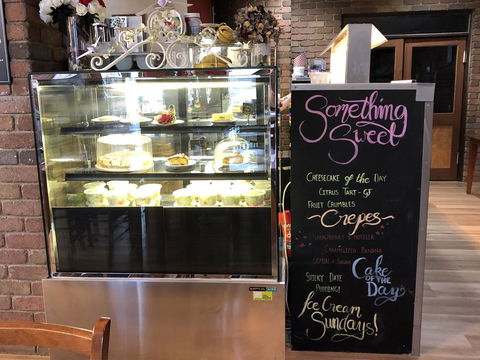 Something
Sweet
CHEESECAKE of the DAY
CITRUS TART - GF
FRUIT CRUMBLES
~Crepes~
STRAWBERRY & NUTELLA
CARAMELIZED BANANA
LEMON & SUGAR
STICKY DATE
PUDDING!
CAKE
OF THE
DAY
Ice Cream
Sundays!